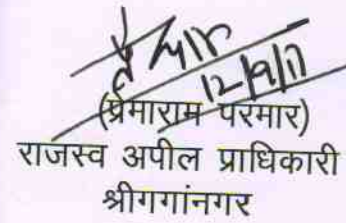 12/9/17
(प्रेमाराम परमार)
राजस्व अपील प्राधिकारी
श्रीगगांनगर